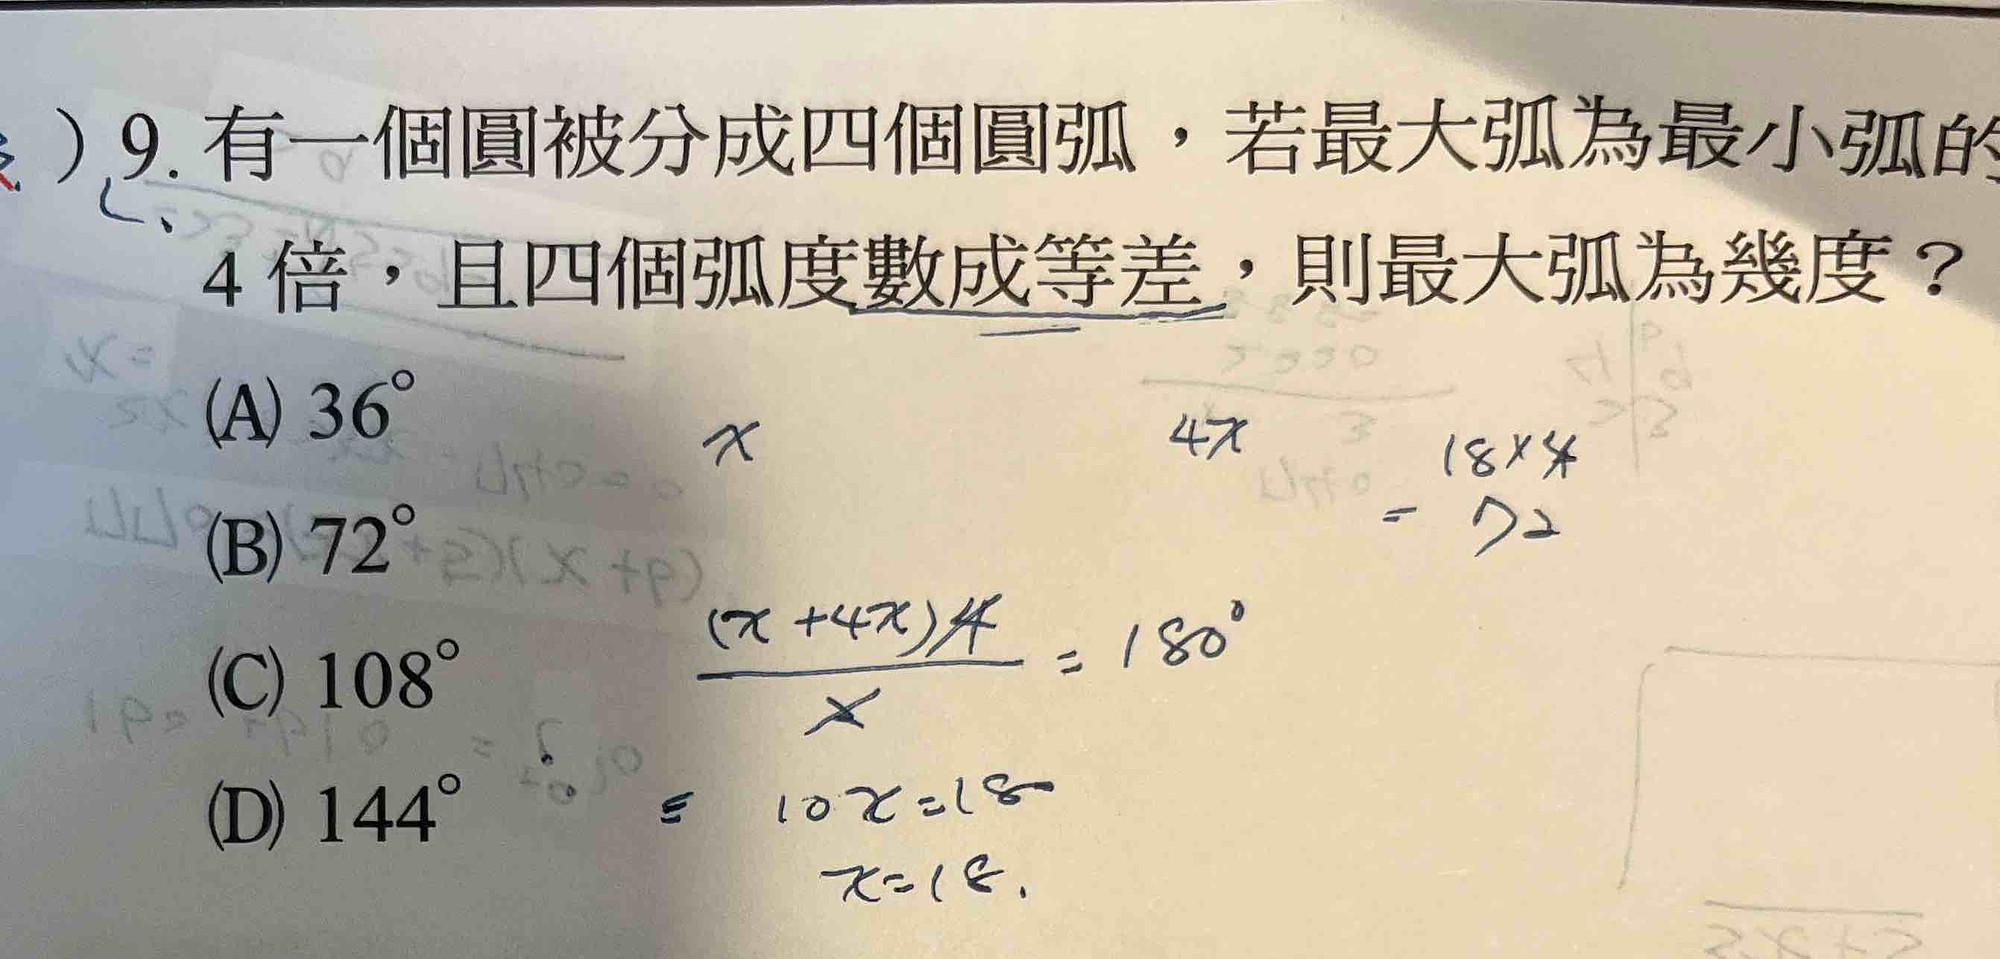 ) 9. 有一個圓被分成四個圓弧，若最大弧為最小弧的
4 倍，且四個弧度數成等差，則最大弧為幾度？
(A) 36°
(B) 72°
(C) 108°
(D) 144°
x 4x
18×4
= 72
(x+4x)4
= 180°
2
= 10x=180
x=18.